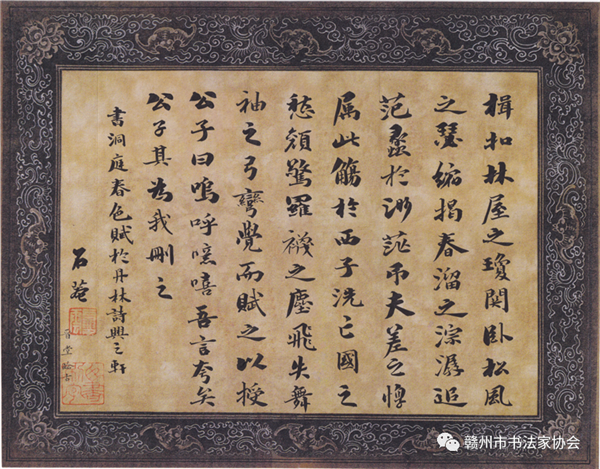 楫扣林屋之瓊関卧松風
之瑟縮揭春溜之淙潺追
范蠡於渺茫吊夫差之惸
属此觴於西子洗亡國之
愁顔驚羅襪之塵飛失舞
袖之弓彎覺而賦之以授
公子曰嗚呼噫嘻吾言夸矣
公子其為我刪之
書洞庭春色賦於丹林詩興之軒
石菴
赣州市书法家协会